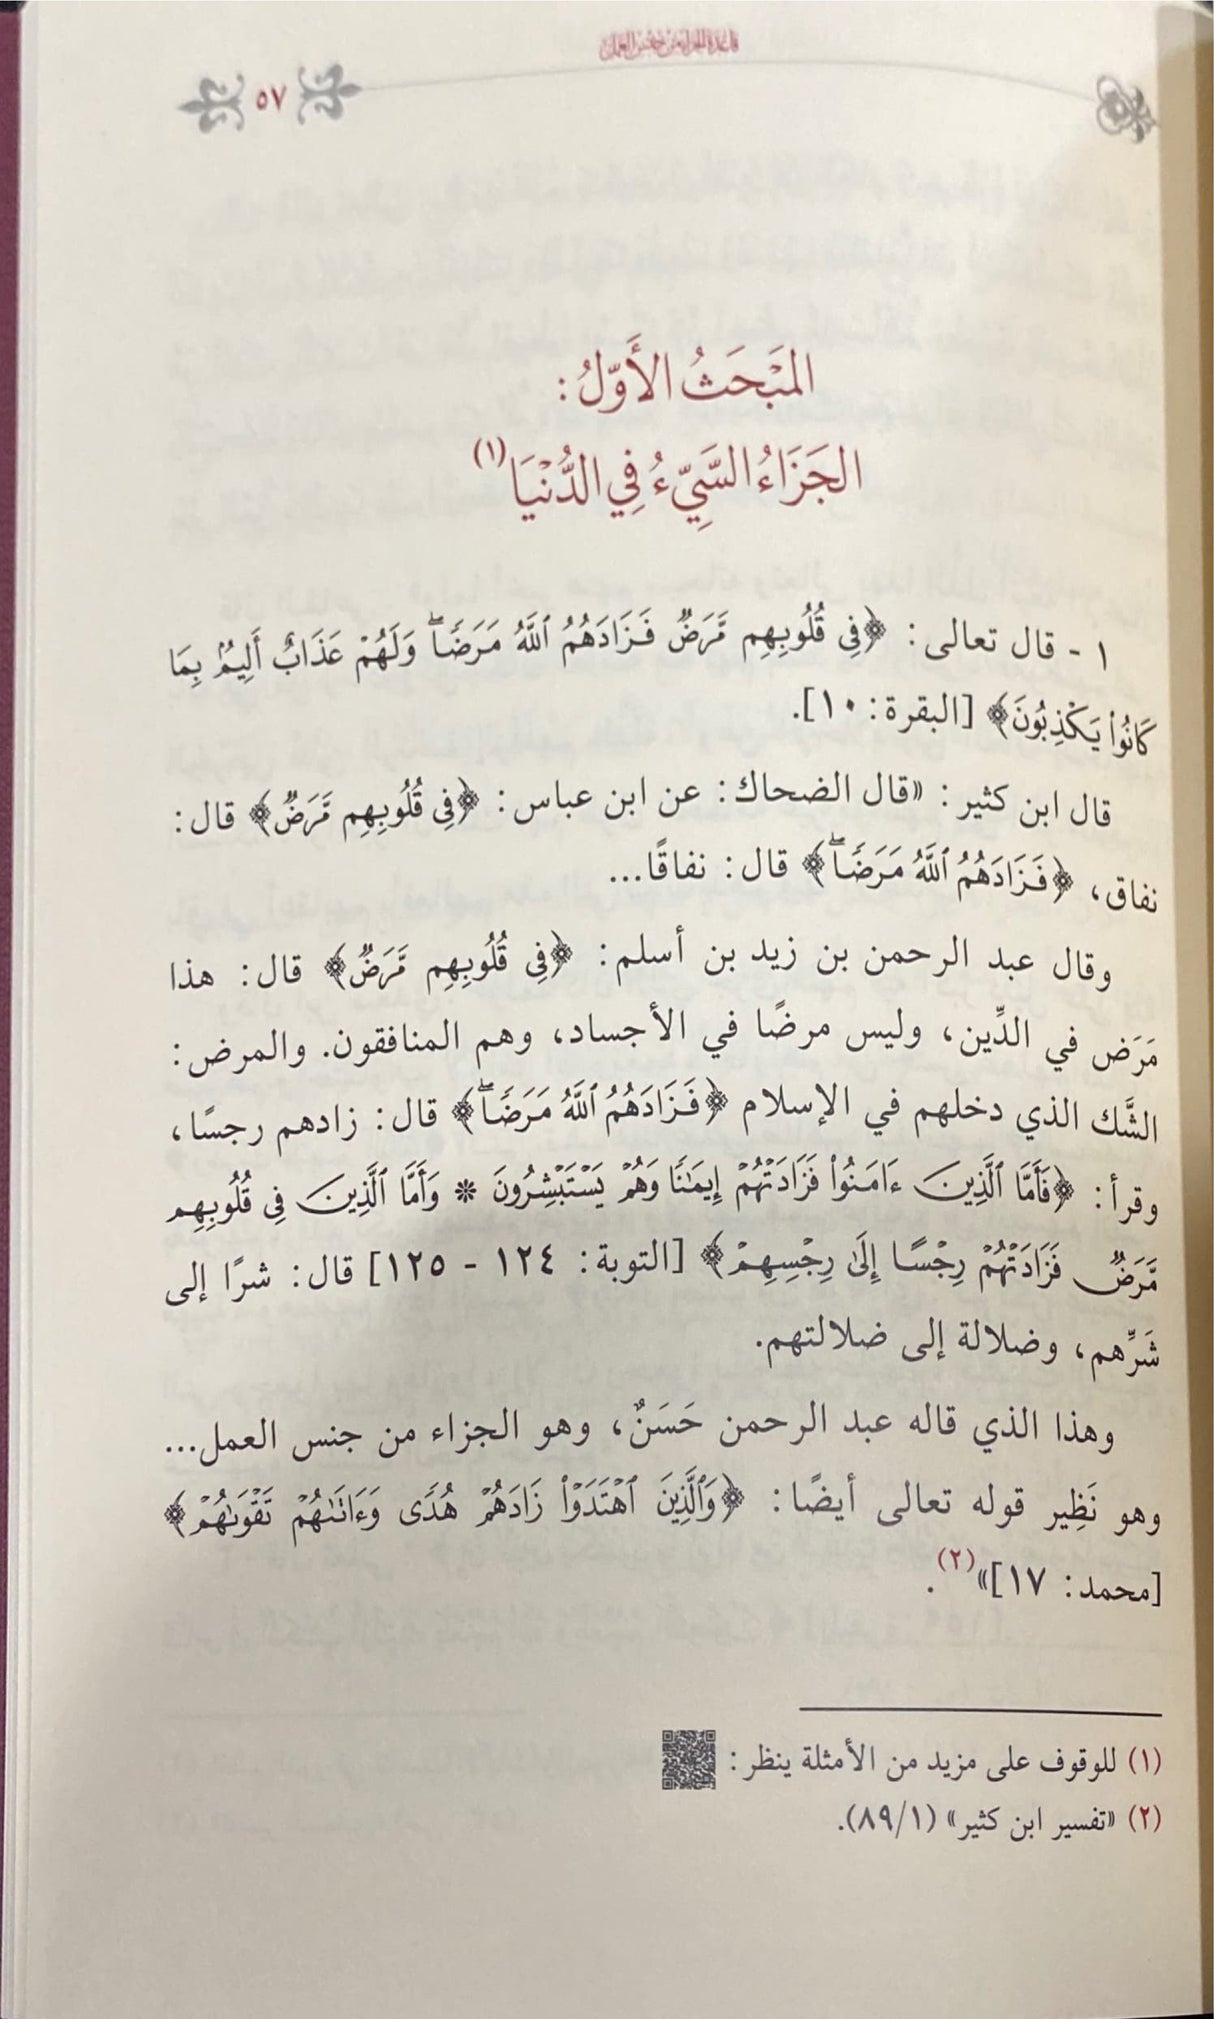 قاعدة الجزاء من جنس العمل
٥٧
المَبْحَثُ الأَوَّلُ:
الجَزَاءُ السَّيِّءُ فِي الدُّنْيَا(١)
١ - قال تعالى: ﴿فِى قُلُوبِهِم مَّرَضٌ فَزَادَهُمُ ٱللَّهُ مَرَضًاۖ وَلَهُمْ عَذَابٌ أَلِيمٌۢ بِمَا
كَانُوا۟ يَكْذِبُونَ﴾ [البقرة: ١٠].
قال ابن كثير: «قال الضحاك: عن ابن عباس: ﴿فِى قُلُوبِهِم مَّرَضٌ﴾ قال:
نفاق، ﴿فَزَادَهُمُ ٱللَّهُ مَرَضًاۖ﴾ قال: نفاقًا...
وقال عبد الرحمن بن زيد بن أسلم: ﴿فِى قُلُوبِهِم مَّرَضٌ﴾ قال: هذا
مَرَض في الدِّين، وليس مرضًا في الأجساد، وهم المنافقون. والمرض:
الشَّك الذي دخلهم في الإسلام ﴿فَزَادَهُمُ ٱللَّهُ مَرَضًاۖ﴾ قال: زادهم رجسًا،
وقرأ: ﴿فَأَمَّا ٱلَّذِينَ ءَامَنُوا۟ فَزَادَتْهُمْ إِيمَـٰنًا وَهُمْ يَسْتَبْشِرُونَ * وَأَمَّا ٱلَّذِينَ فِى قُلُوبِهِم
مَّرَضٌ فَزَادَتْهُمْ رِجْسًا إِلَىٰ رِجْسِهِمْ﴾ [التوبة: ١٢٤ - ١٢٥] قال: شرًا إلى
شَرِّهم، وضلالة إلى ضلالتهم.
وهذا الذي قاله عبد الرحمن حَسَنٌ، وهو الجزاء من جنس العمل...
وهو نَظِير قوله تعالى أيضًا: ﴿وَٱلَّذِينَ ٱهْتَدَوْا۟ زَادَهُمْ هُدًى وَءَاتَىٰهُمْ تَقْوَىٰهُمْ﴾
[محمد: ١٧]»(٢).
(١) للوقوف على مزيد من الأمثلة ينظر:
(٢) «تفسير ابن كثير» (٨٩/١).